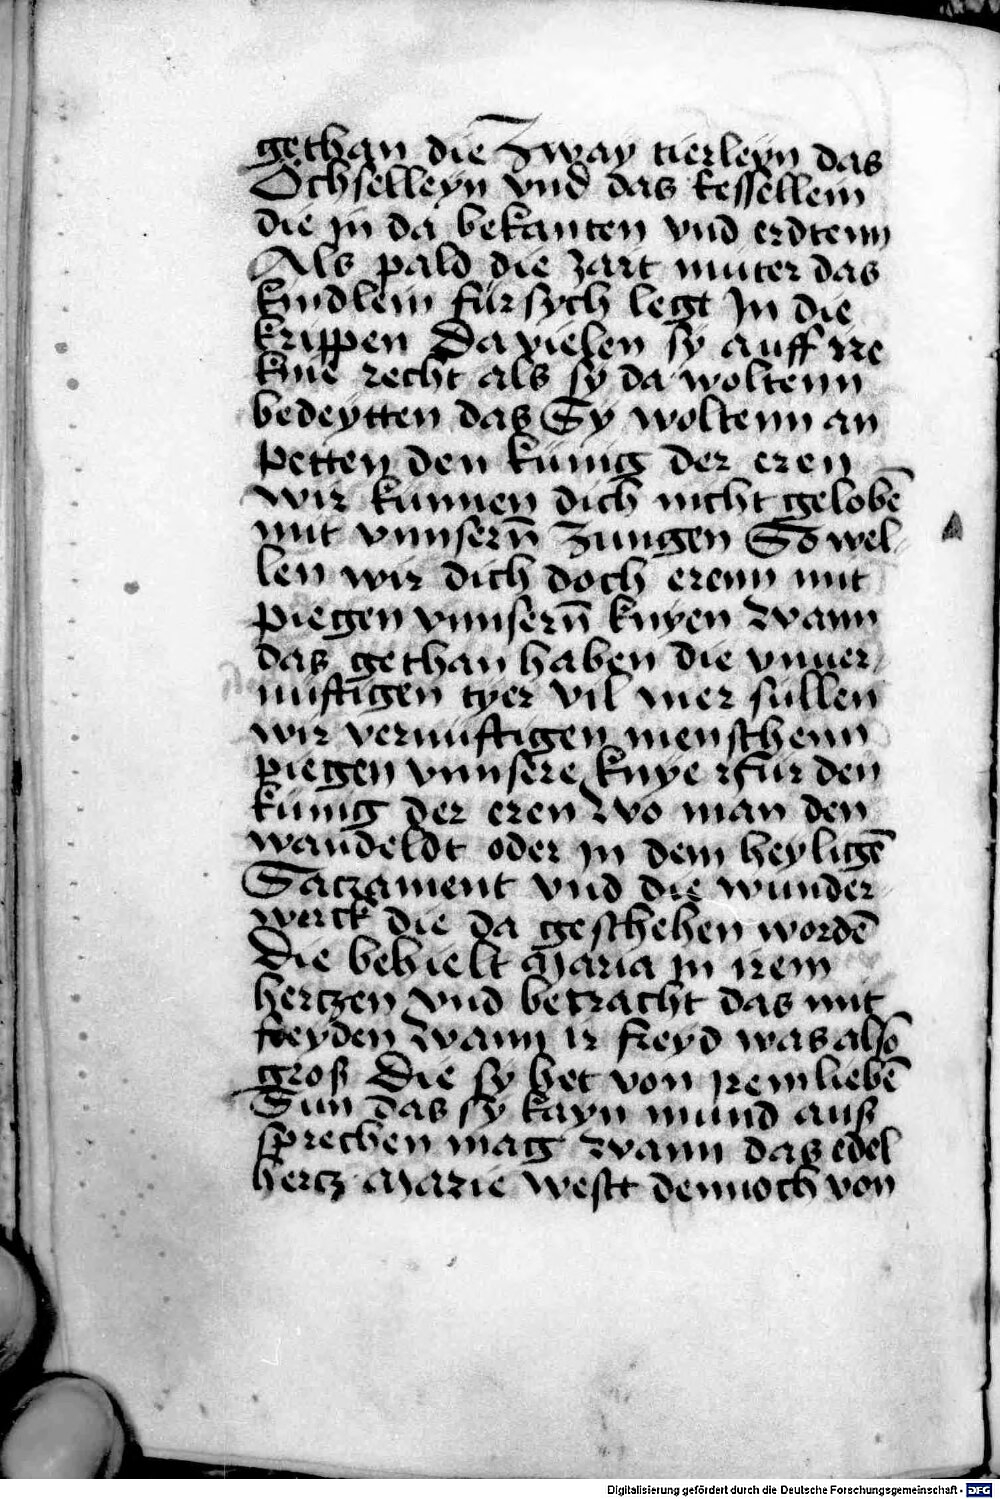 gethan die Zway tierleyn das
Öchselleyn vnd das kessellein
die jn da bekanten vnd erdtenn
Als pald die zart muter das
kindlein für sych legt Jn die
krippen Da vielen sy auff ire
knie recht als sy da woltenn
bedeytten das Sy woltenn an
petten den künig der eren
wir künnen dich nicht gelobē
mit vnnsern̄ Zungen So wel-
len wir dich doch erenn mit
piegen vnnsern̄ knyen Wann
das gethan haben die vnuer-
nuftigen tyer vil mer süllen
wir vernuftigen menschenn
piegen vnnsere knye für den
künig der eren Wo man den
wandeldt oder jn dem heyligē
Sacrament vnd die wunder-
werck die da geschehen wordē
Die behielt Maria jn irem
hertzen vnd betracht das mit
freyden Wann ir freyd was also
groß Die sy het von jrem liebē
Sun das sy kayn mund auß
sprechen mag Wann das edel
hertz Marie westt dennoch von
Digitalisierung gefördert durch die Deutsche Forschungsgemeinschaft - DFG